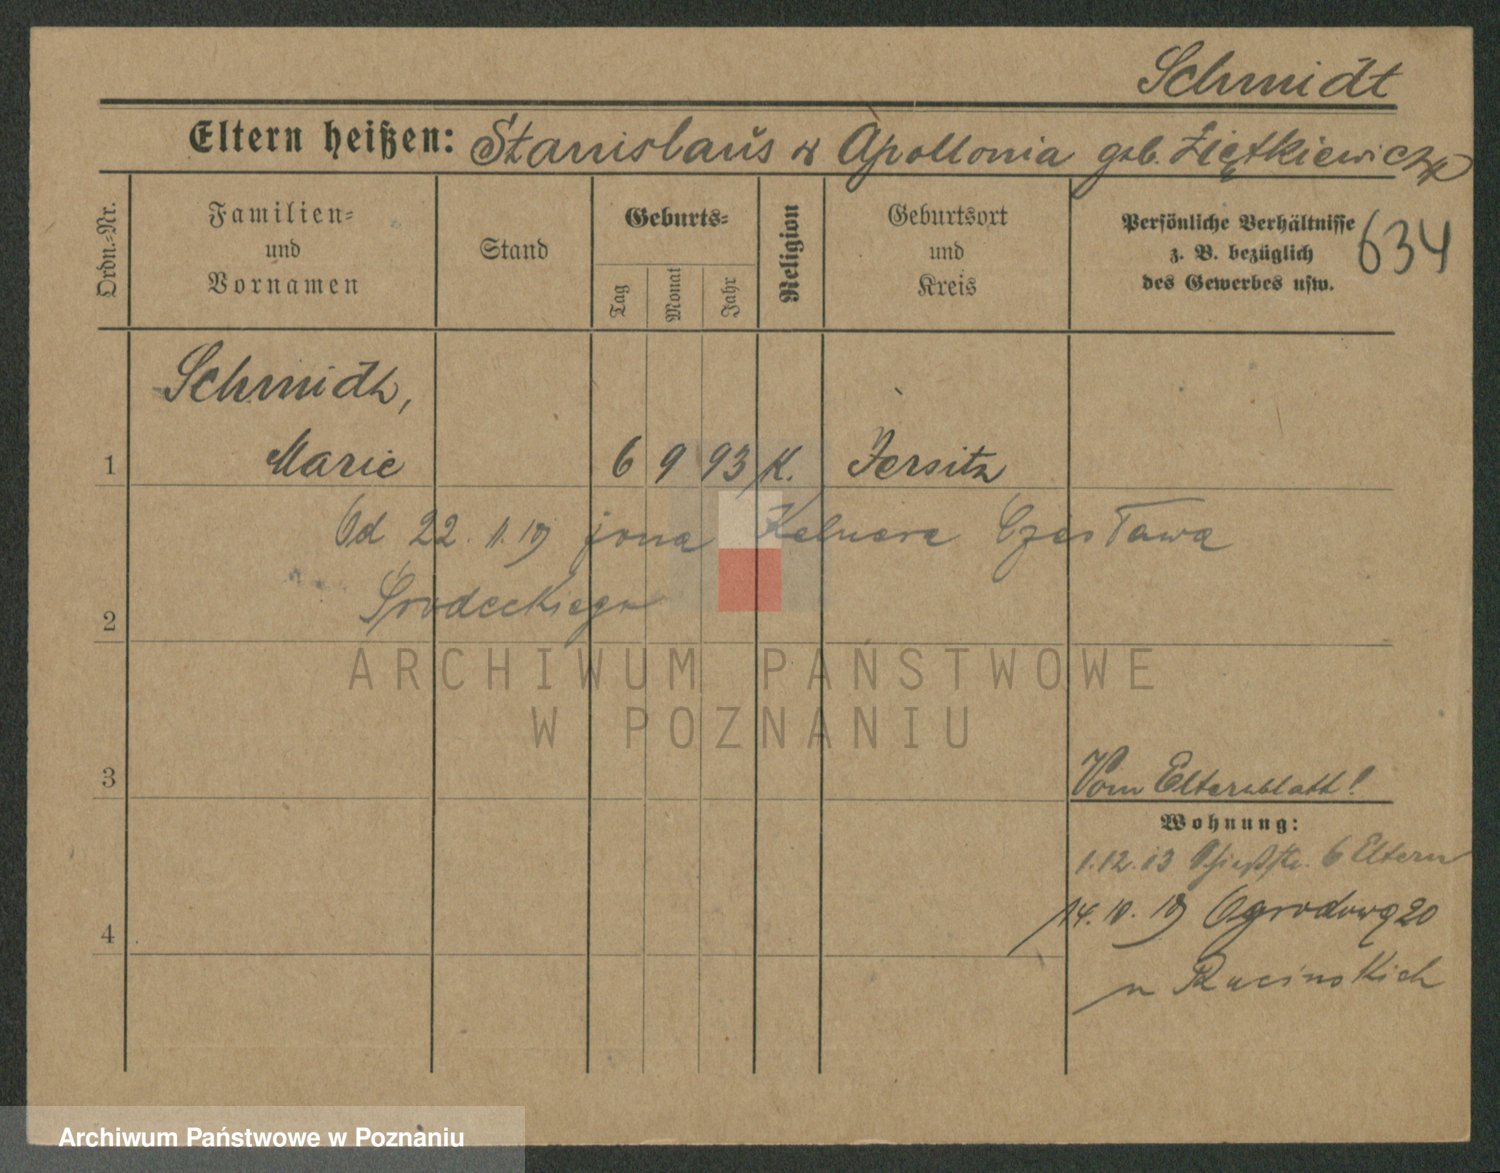 Schmidt
Eltern heißen: Stanislaus & Apollonia geb. Ziętkiewicz
Ordn.-Nr.
Familien-
und
Vornamen
Stand
Geburts-
Tag
Monat
Jahr
Religion
Geburtsort
und
Kreis
Persönliche Verhältnisse
z. B. bezüglich
des Gewerbes usw.
634
Schmidt,
1 Marie 6 9 93 K. Jersitz
Od 22. 11. 19 żona Kelnera Czesława
2 Srodeckiego
ARCHIWUM PAŃSTWOWE
W POZNANIU
3
Vom Elternblatt!
Wohnung:
1.12.13 6 Eltern
14. 10. 19 Ogrodowa 20
4
u Racinskich
Archiwum Państwowe w Poznaniu